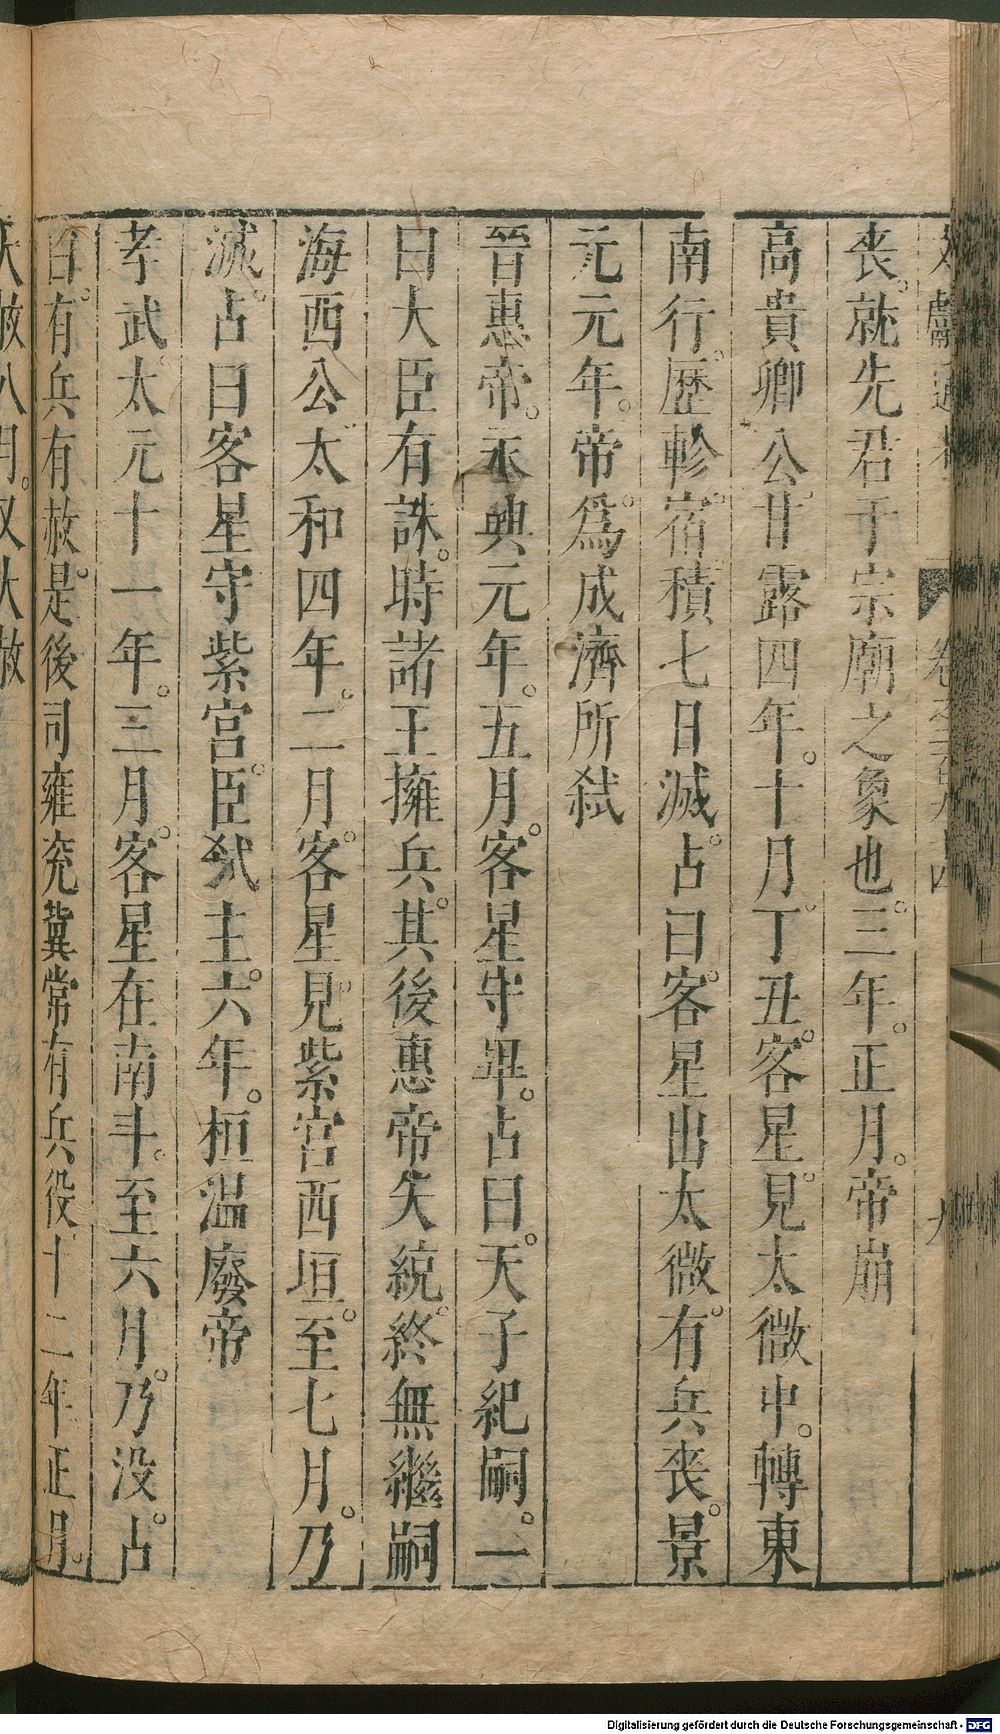 喪。就先君于宗廟之象也。三年。正月。帝崩
高貴鄉公。甘露四年。十月。丁丑。客星。見太微中。轉東
南行。歷軫宿。積七日滅。占曰。客星出太微。有兵喪。景
元元年。帝爲成濟所弑
晉惠帝。永興元年。五月。客星守畢。占曰。天子絕嗣。一
曰大臣有誅。時諸王擁兵。其後惠帝失統。終無繼嗣
海西公太和四年。二月。客星見紫宮西垣。至七月。乃
滅。占曰客星守紫宮。臣弑主。六年。桓溫廢帝
孝武太元十一年。三月。客星在南斗。至六月。乃没。占
曰。有兵有赦。是後司雍兖冀常有兵役。十二年正月。
大赦八月。又大赦
卷之
九
Digitalisierung gefördert durch die Deutsche Forschungsgemeinschaft - DFG